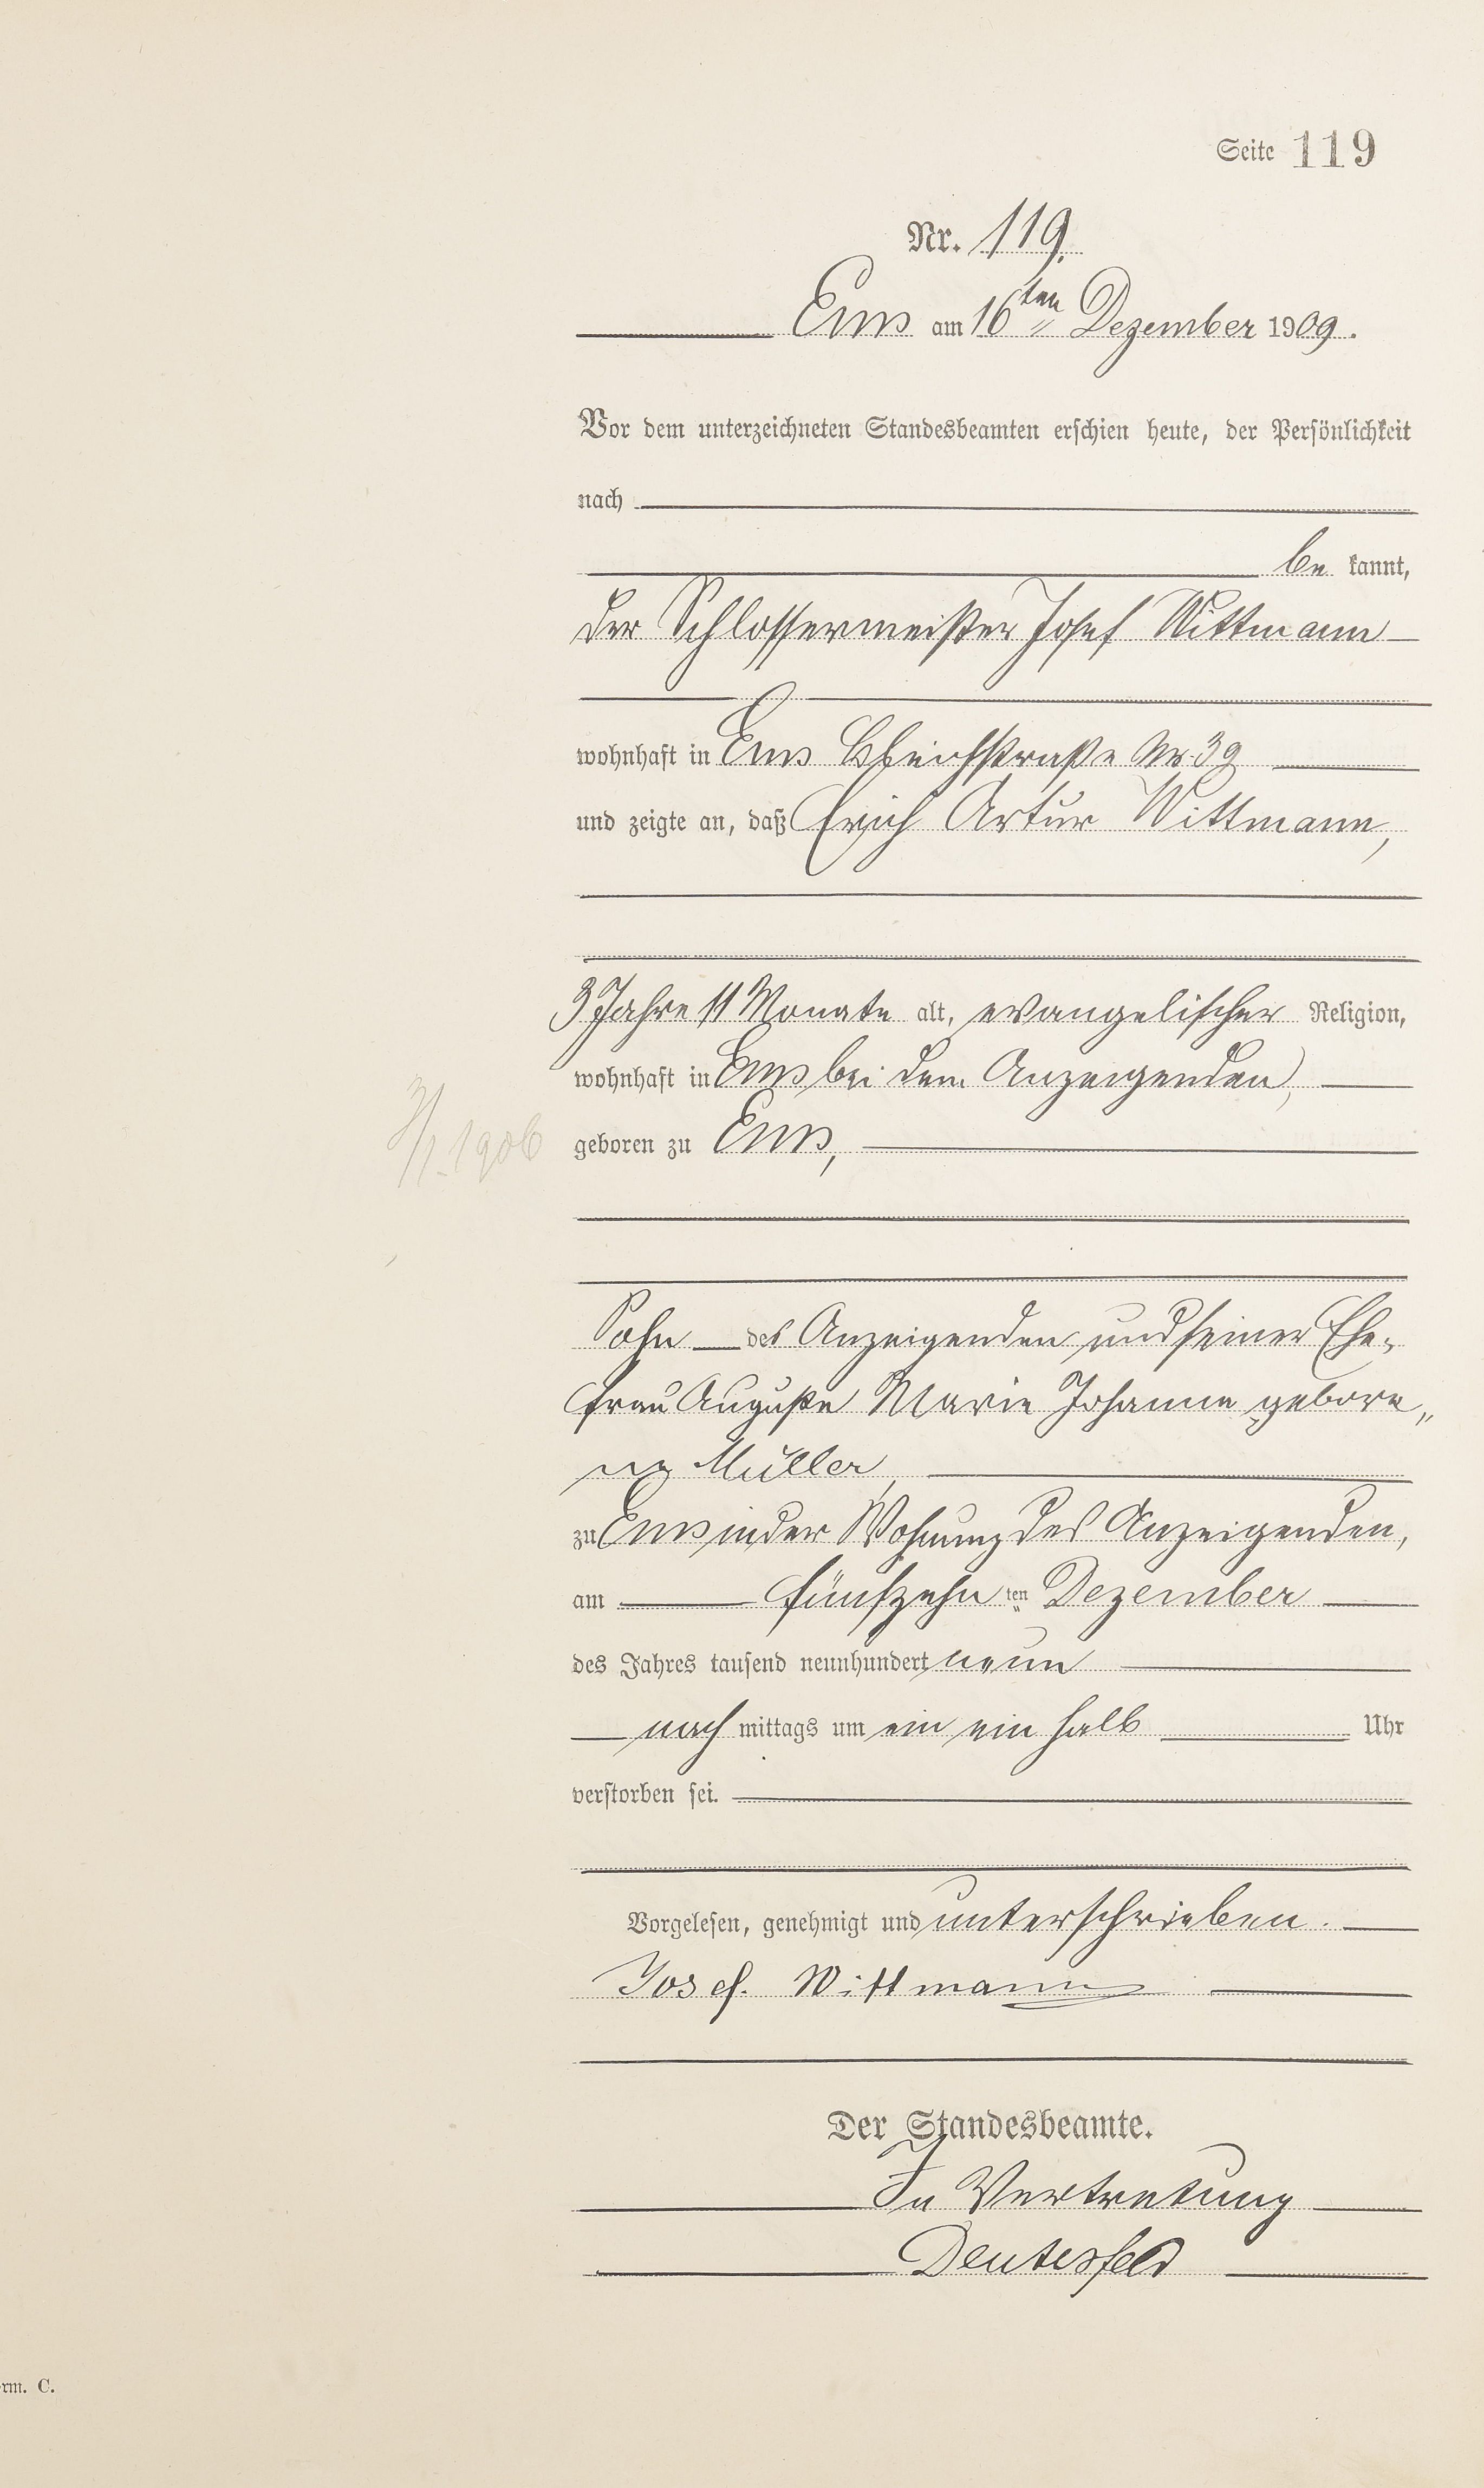 Seite 119
Nr. 119.
Ems am 16ten Dezember 1909.
Vor dem unterzeichneten Standesbeamten erschien heute, der Persönlichkeit
nach
be kannt,
der Schlossermeister Josef Wittmann
wohnhaft in Ems Bleichstraße Nr. 39
und zeigte an, daß Erich Artur Wittmann,
3 Jahre 11 Monate alt, evangelischer Religion,
wohnhaft in Ems bei dem Anzeigenden,
3/1. 1906
geboren zu Ems,
Sohn des Anzeigenden und seiner Ehe-
frau Auguste Marie Johanna gebore„
ne Müller,
zu Ems in der Wohnung des Anzeigenden,
am fünfzehn ten Dezember
des Jahres tausend neunhundert neun
nach mittags um ein ein halb Uhr
verstorben sei.
Vorgelesen, genehmigt und unterschrieben.
Josef. Wittmann
Der Standesbeamte.
In Vertretung
Deutesfeld
rm. C.